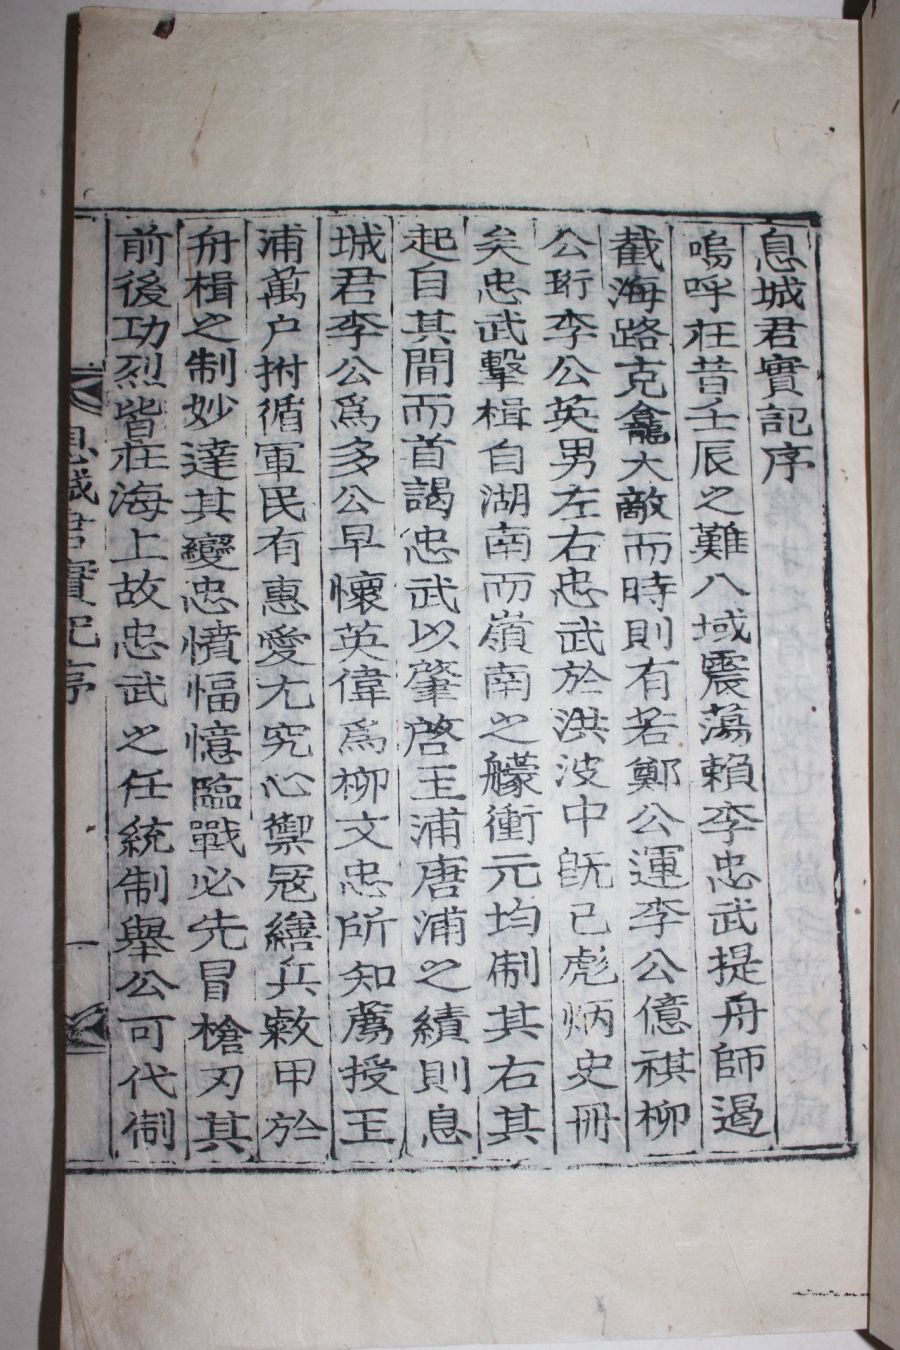 息城君實記序
嗚呼在昔壬辰之難八域震蕩賴李忠武提舟師遏
截海路克龕大敵而時則有若鄭公運李公億祺柳
公珩李公英男左右忠武於洪波中旣已彪炳史冊
矣忠武擊楫自湖南而嶺南之艨衝元均制其右其
起自其間而首謁忠武以肇啓玉浦唐浦之績則息
城君李公爲多公早懷英偉爲柳文忠所知薦授玉
浦萬户拊循軍民有惠愛尤究心禦寇繕兵敹甲於
舟楫之制妙達其變忠憤愊憶臨戰必先冒槍刃其
前後功烈皆在海上故忠武之任統制舉公可代制
息城君實記序
一